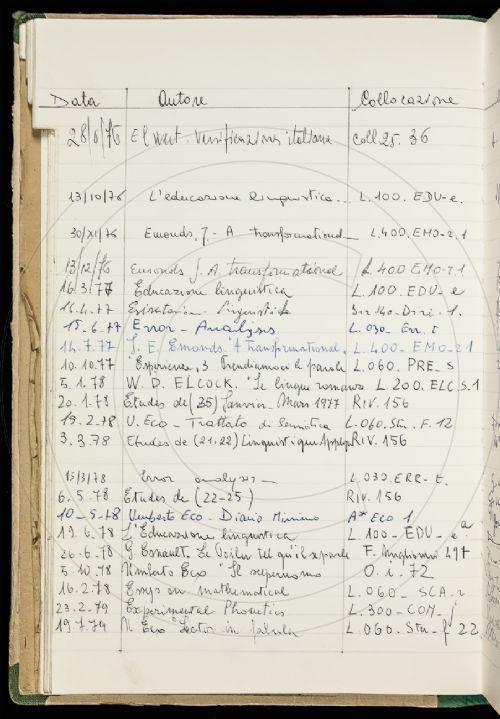 Data Autore Collocazione
28/6/76 Elwert. Versificazione italiana Coll 25. 36
13/10/76 L'educazione linguistica... L.100. EDU-e.
30/XI/76 Emonds, J. - A transformational L.400.EMO-2.1
13/12/76 Emonds J. A transformational L 400 EMO-2.1
16.3/77 Educazione linguistica L.100. EDU- e
16.4.77 Linguistica
15.6.77 Error - Analysis L.030- Err. t
14.7.77 J. E. Emonds "A transformational. L.400- EMO-21
10.10.77 "Esperienze, 3 Prendiamoci la parola L.060. PRE_S
5.1.78 W. D. ELCOCK. "Le lingue romanze L 200. ELC S.1
20.1.78 Etudes de (25) Janvier-Mars 1977 RIV.156
19.2.78 U. Eco - Trattato di semiotica L.060.Sta. F. 12
3.3.78 Etudes de (21.22) Linguistique Appliq RIV. 156
15/3/78 Error analyses - L.030.ERR- t.
6.5.78 Etudes de (22-25) RIV. 156
10-5-78 Umberto Eco - Diario Minimo A* Eco 1
19.6.78 L'Educazione linguistica L 100- EDU- e a
26.6.78 G. Esnault. Le Poilu tel qu'il se parle F.
5.10.78 Umberto Eco "Il superuomo O.i.72
16.2.78 Essays on mathematical L.060- SCA.2
23.2.79 Experimental Phonetics L.300-COM. j
19.7.79 U. Eco "Lector in fabula L.060. Sta- f 22